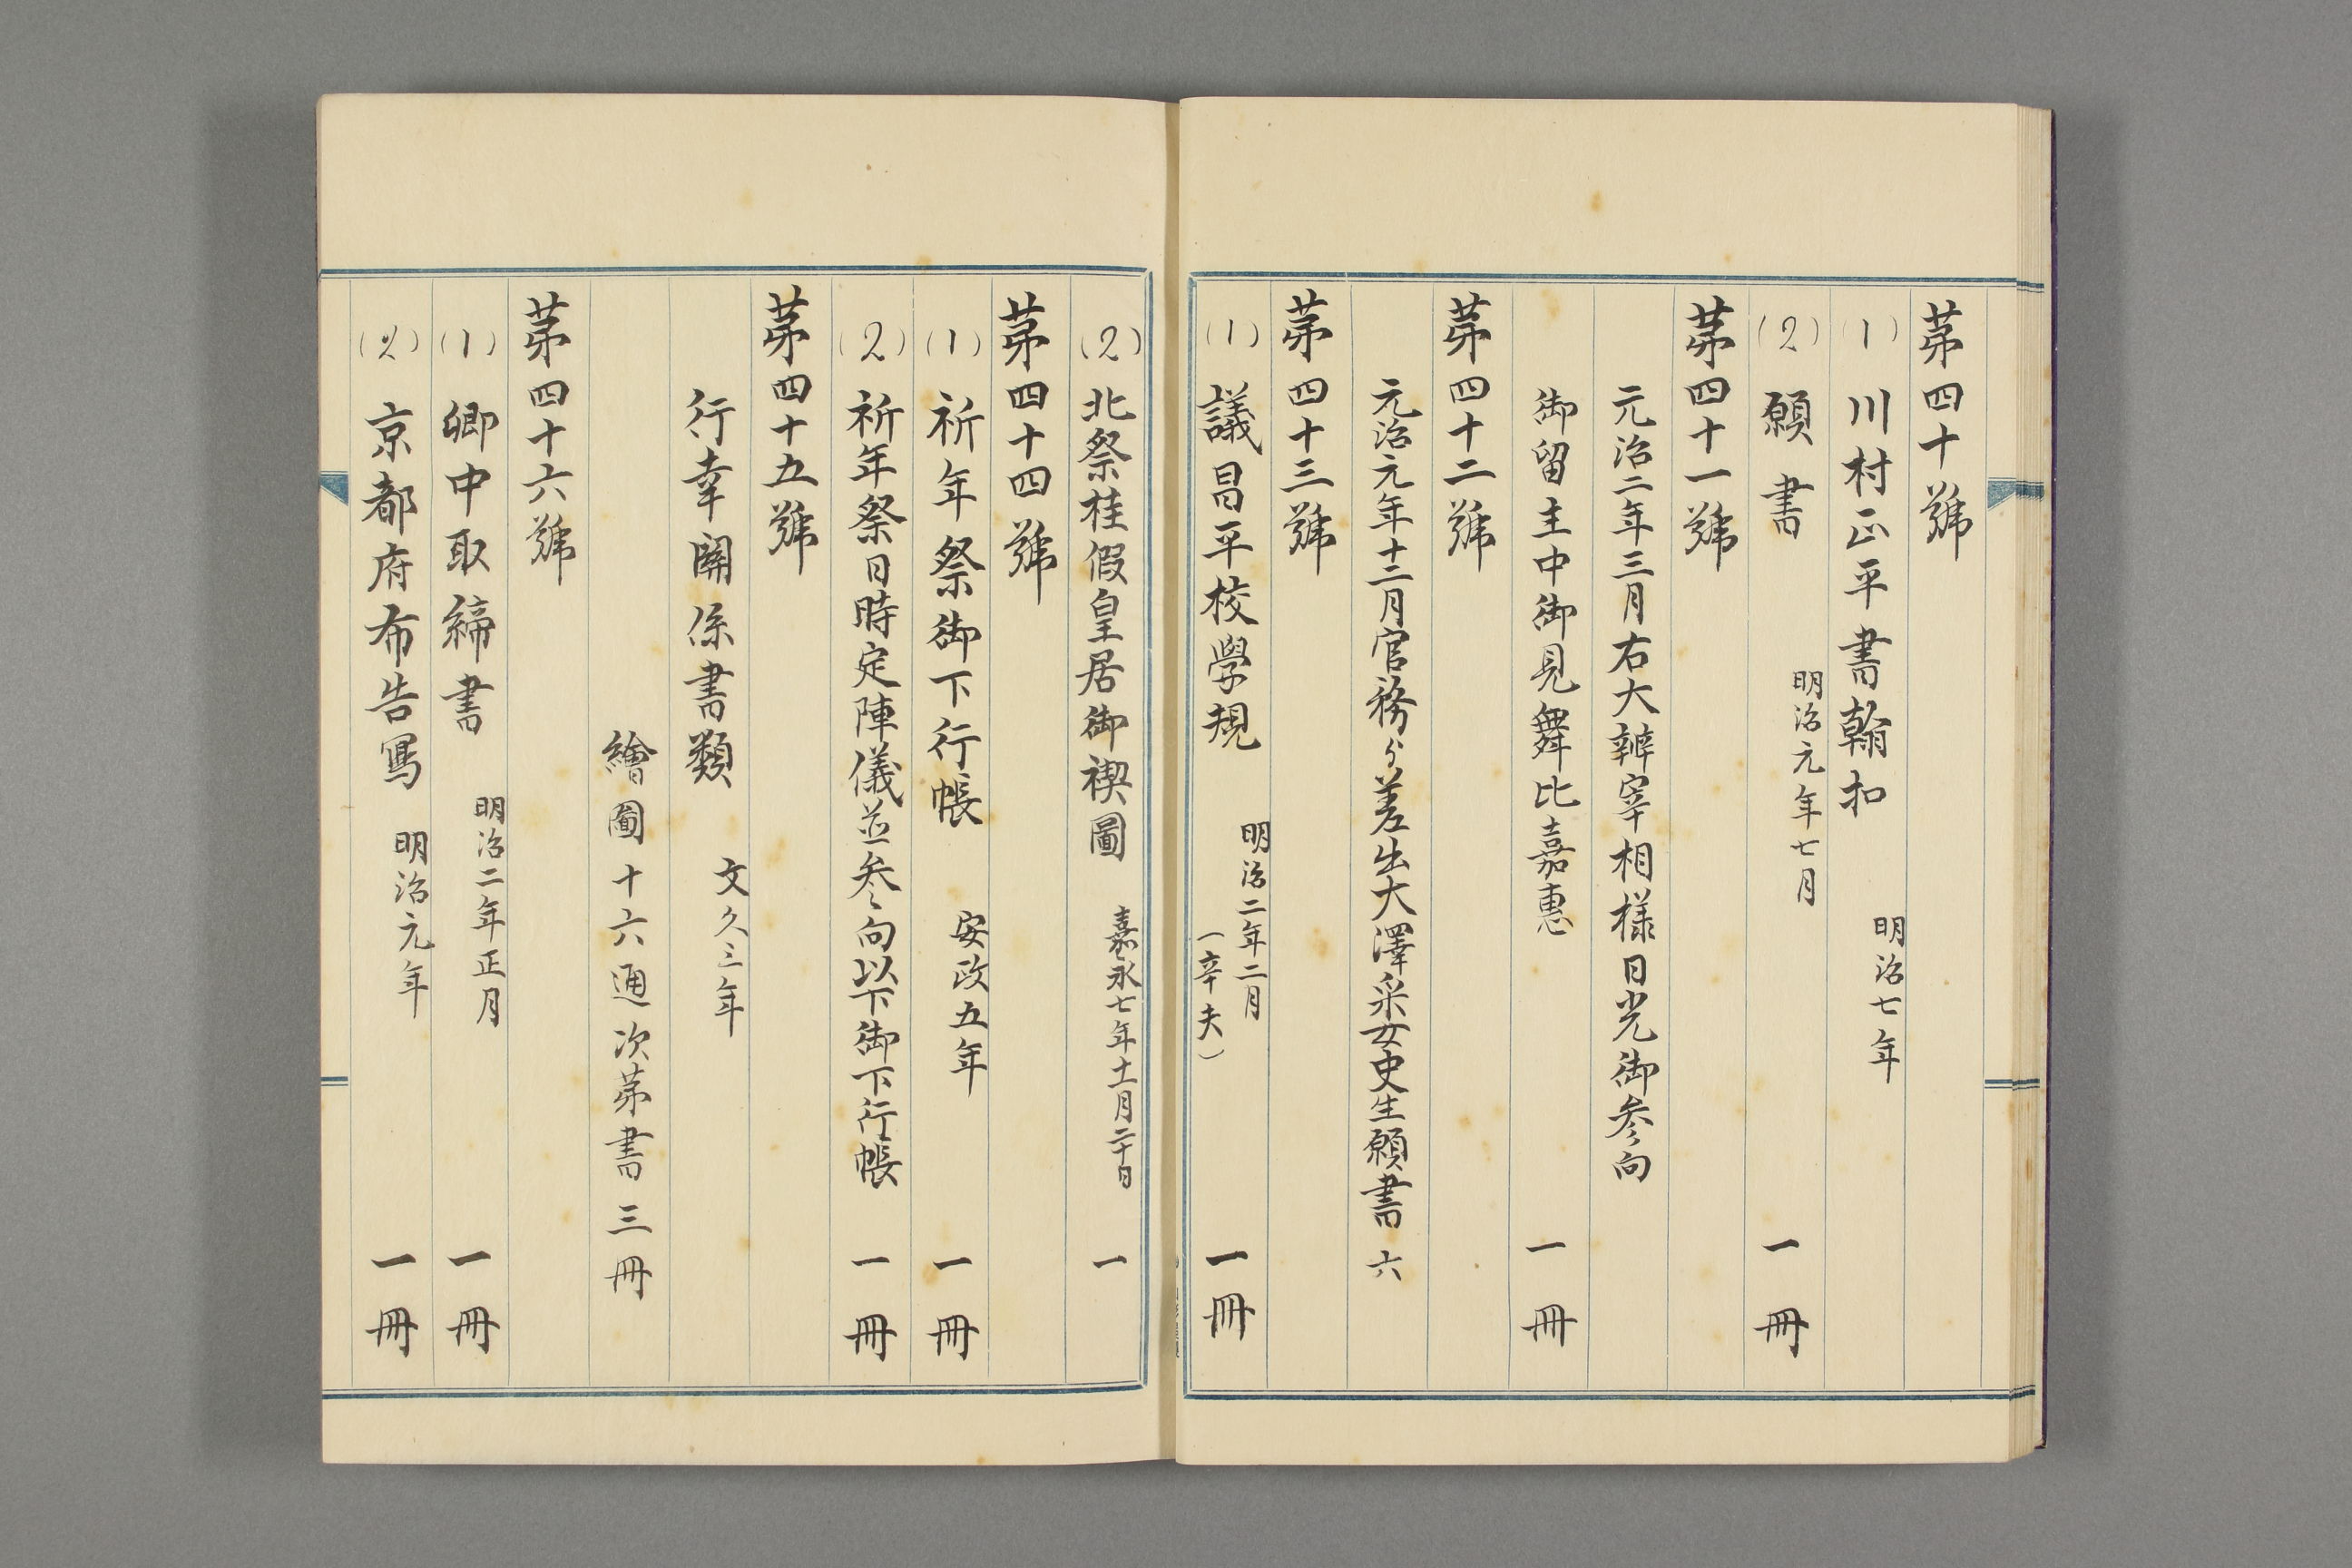 第四十號
(1) 川村正平書翰扣 明治七年
(2) 願書 明治元年七月 一冊
第四十一號
元治二年三月右大辨宰相様日光御参向
御留主中御見舞比嘉惠 一冊
第四十二號
元治元年十二月官務ゟ差出大澤采女史生願書 六
第四十三號
(1) 議昌平校學規 明治二年二月 (辛夫) 一冊
(2) 北祭桂假皇居御禊圖 嘉永七年十一月二十日 一
第四十四號
(1) 祈年祭御下行帳 安政五年 一冊
(2) 祈年祭日時定陣儀並参向以下御下行帳 一冊
第四十五號
行幸関係書類 文久三年
繪圖十六通次第書三冊
第四十六號
(1) 卿中取締書 明治二年正月 一冊
(2) 京都府布告寫 明治元年 一冊